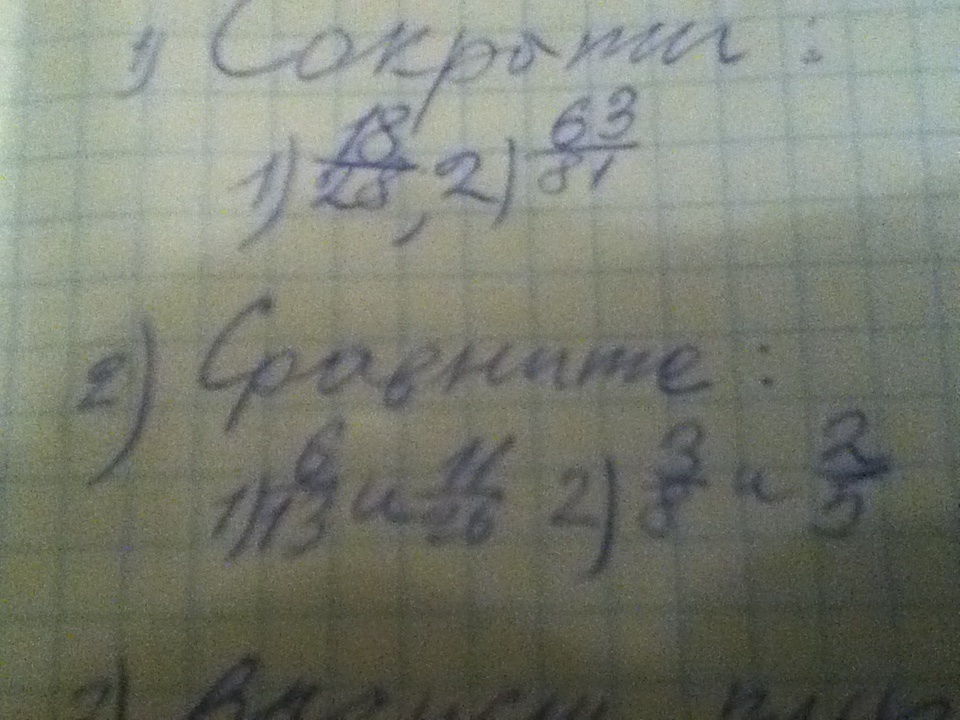 1) Сократи:
1) 18/28, 2) 63/81
2) Сравните:
1) 6/13 и 11/26 2) 3/8 и 2/5